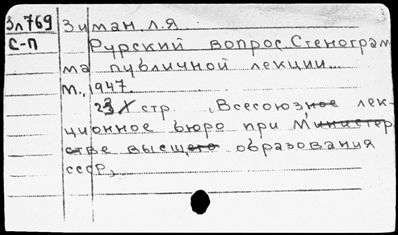 Зл769 Зиман, Л.Я
С-П Рурский вопрос. Стенограм
ма публичной лекции...
М., 1947.
23 стр. (Всесоюзное лек-
ционное бюро при Министер
стве высшего образования
СССР)